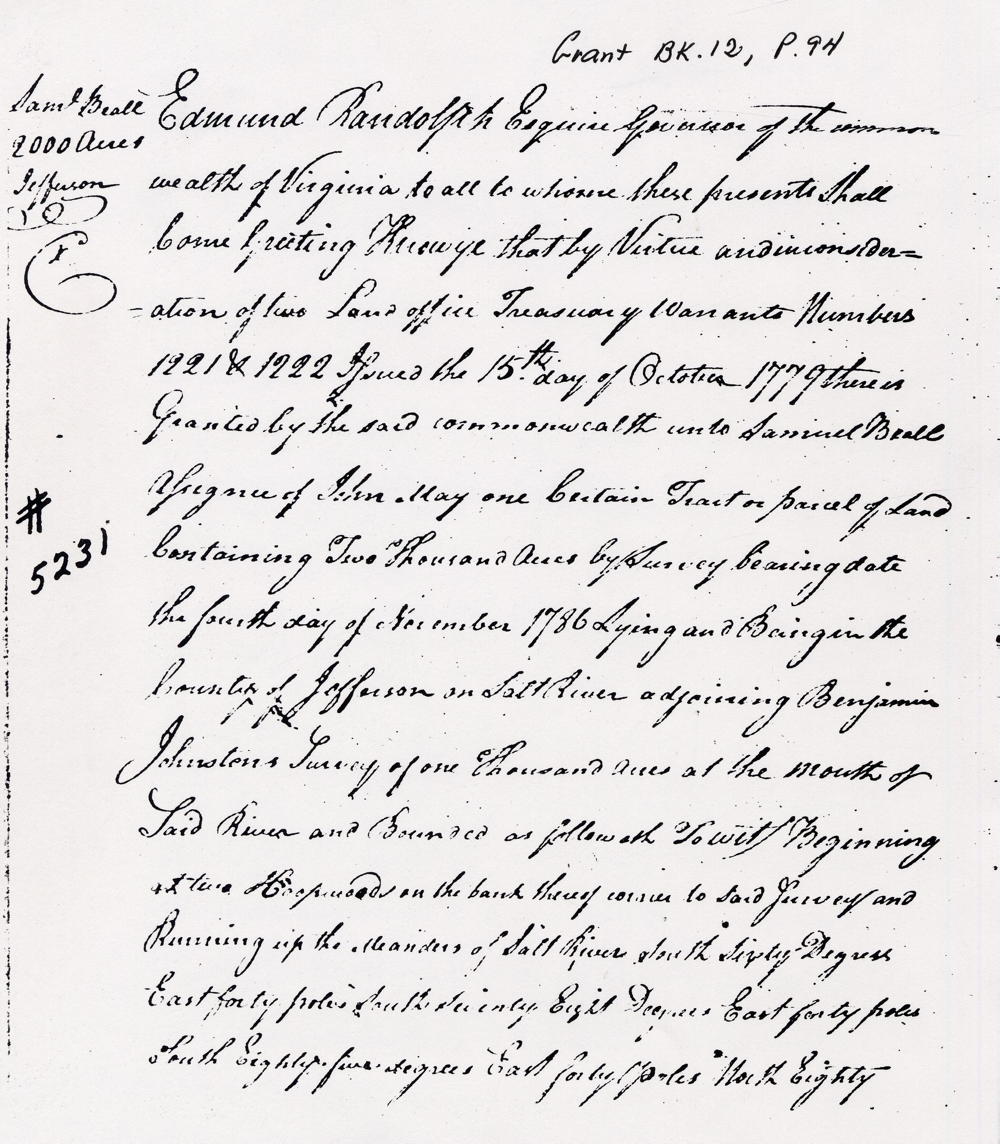 Grant BK. 12, P. 94
Saml Beall
2000 Acres
Jefferson
Edmund Randolph Esquire Governor of the common
wealth of Virginia to all to whome these presents Shall
Come Greeting Know ye that by Virtue and in consider=
=ation of two Land office Treasuary Warrants Numbers
1221 & 1222 Issued the 15th day of October 1779 there is
Granted by the said commonwealth unto Samuel Beall
Assignee of John May one Certain Tract or parcel of Land
Containing Two Thousand Acres by Survey bearing date
# 5231
the fourth day of November 1786 Lying and Being in the
County of Jefferson on Salt River adjoining Benjamin
Johnstons Survey of one Thousand acres at the mouth of
Said River and Bounded as followeth To wit Beginning
at two Hoopwoods on the bank thereof corner to said Survey and
Running up the Meanders of Salt River South Sixty Degrees
East forty poles South Seventy Eight Degrees East forty poles
South Eighty five degrees East forty poles North Eighty